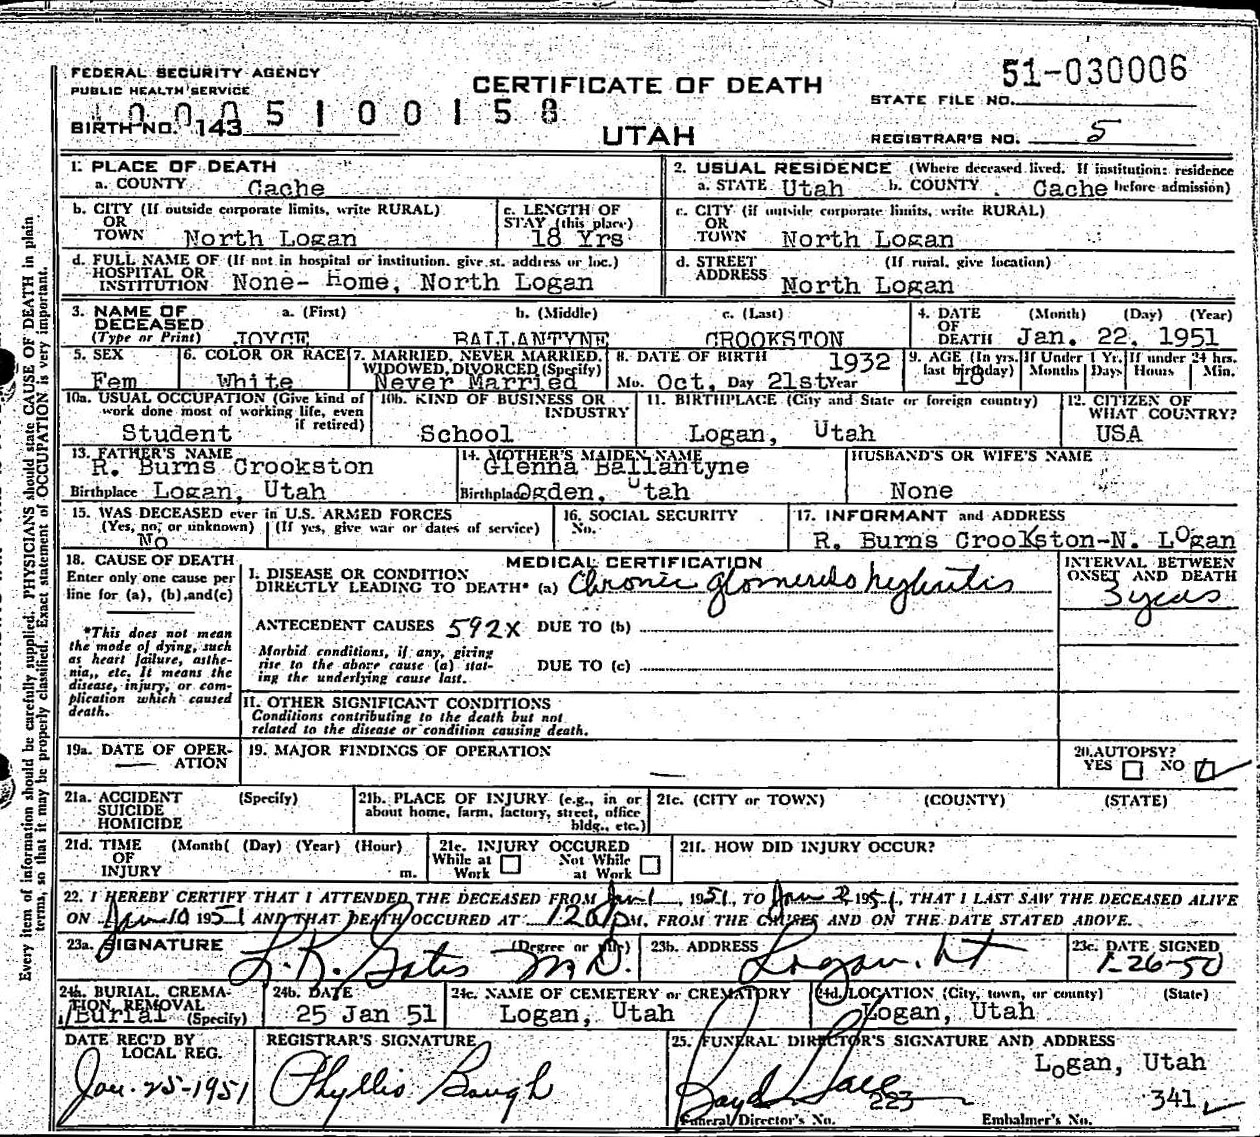 FEDERAL SECURITY AGENCY
PUBLIC HEALTH SERVICE
CERTIFICATE OF DEATH
UTAH
51-030006
STATE FILE NO.
REGISTRAR'S NO. 5
BIRTH NO. 143
1. PLACE OF DEATH
a. COUNTY Cache
2. USUAL RESIDENCE (Where deceased lived. If institution: residence before admission)
a. STATE Utah b. COUNTY Cache
b. CITY (If outside corporate limits, write RURAL) OR TOWN North Logan
c. LENGTH OF STAY (this place) 18 Yrs
c. CITY (if outside corporate limits, write RURAL) OR TOWN North Logan
d. FULL NAME OF (If not in hospital or institution, give st. address or loc.) HOSPITAL OR INSTITUTION None- Home, North Logan
d. STREET ADDRESS (If rural, give location) North Logan
3. NAME OF DECEASED (Type or Print)
a. (First) JOYCE b. (Middle) BALLANTYNE c. (Last) CROOKSTON
4. DATE OF DEATH (Month) (Day) (Year) Jan. 22, 1951
5. SEX Fem
6. COLOR OR RACE White
7. MARRIED, NEVER MARRIED, WIDOWED, DIVORCED (Specify) Never Married
8. DATE OF BIRTH 1932
Mo. Oct, Day 21st Year
9. AGE (In yrs. last birthday) 18
If Under 1 Yr. Months Days
If under 24 hrs. Hours Min.
10a. USUAL OCCUPATION (Give kind of work done most of working life, even if retired) Student
10b. KIND OF BUSINESS OR INDUSTRY School
11. BIRTHPLACE (City and State or foreign country) Logan, Utah
12. CITIZEN OF WHAT COUNTRY? USA
13. FATHER'S NAME R. Burns Crookston
Birthplace Logan, Utah
14. MOTHER'S MAIDEN NAME Glenna Ballantyne
Birthplace Ogden, Utah
HUSBAND'S OR WIFE'S NAME None
15. WAS DECEASED ever in U.S. ARMED FORCES
(Yes, no, or unknown) (If yes, give war or dates of service)
No
16. SOCIAL SECURITY No.
17. INFORMANT and ADDRESS
R. Burns Crookston-N. Logan
18. CAUSE OF DEATH
Enter only one cause per line for (a), (b), and (c)
*This does not mean the mode of dying, such as heart failure, asthenia,, etc. It means the disease, injury, or complication which caused death.
MEDICAL CERTIFICATION
I. DISEASE OR CONDITION DIRECTLY LEADING TO DEATH* (a) Chronic glomerulo nephritis
INTERVAL BETWEEN ONSET AND DEATH
3 years
ANTECEDENT CAUSES 592x DUE TO (b)
Morbid conditions, if any, giving rise to the above cause (a) stating the underlying cause last.
DUE TO (c)
II. OTHER SIGNIFICANT CONDITIONS
Conditions contributing to the death but not related to the disease or condition causing death.
19a. DATE OF OPERATION
19. MAJOR FINDINGS OF OPERATION
20. AUTOPSY?
YES NO
21a. ACCIDENT SUICIDE HOMICIDE (Specify)
21b. PLACE OF INJURY (e.g., in or about home, farm, factory, street, office bldg., etc.)
21c. (CITY or TOWN) (COUNTY) (STATE)
21d. TIME OF INJURY (Month( (Day) (Year) (Hour) m.
21e. INJURY OCCURED
While at Work Not While at Work
21f. HOW DID INJURY OCCUR?
22. I HEREBY CERTIFY THAT I ATTENDED THE DECEASED FROM Jan 1, 1951, TO Jan 2 1951, THAT I LAST SAW THE DECEASED ALIVE
ON Jan 10 1951 AND THAT DEATH OCCURED AT M, FROM THE CAUSES AND ON THE DATE STATED ABOVE.
23a. SIGNATURE (Degree or title)
L. K. Gates M.D.
23b. ADDRESS Logan, Ut
23c. DATE SIGNED
1-26-50
24a. BURIAL, CREMATION, REMOVAL (Specify) Burial
24b. DATE 25 Jan 51
24c. NAME OF CEMETERY or CREMATORY Logan, Utah
24d. LOCATION (City, town, or county) (State) Logan, Utah
DATE REC'D BY LOCAL REG.
Jan-25-1951
REGISTRAR'S SIGNATURE
Phyllis Baugh
25. FUNERAL DIRECTOR'S SIGNATURE AND ADDRESS
Logan, Utah
223 341
Funeral Director's No. Embalmer's No.
Every item of information should be carefully supplied. PHYSICIANS should state CAUSE OF DEATH in plain
terms, so that it may be properly classified. Exact statement of OCCUPATION is very important.